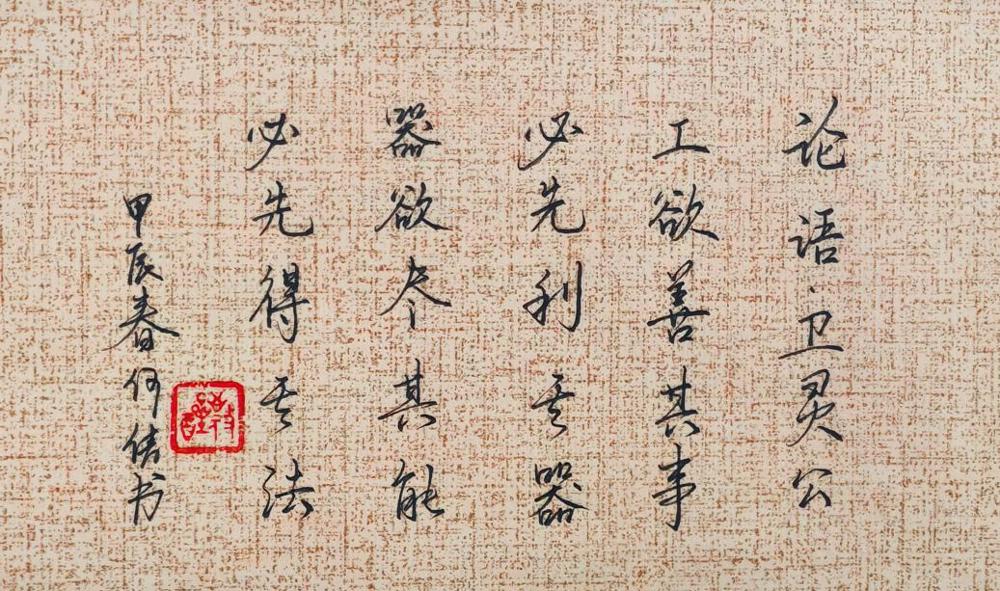 论语·卫灵公
工欲善其事
必先利其器
器欲尽其能
必先得其法
甲辰春何倩书